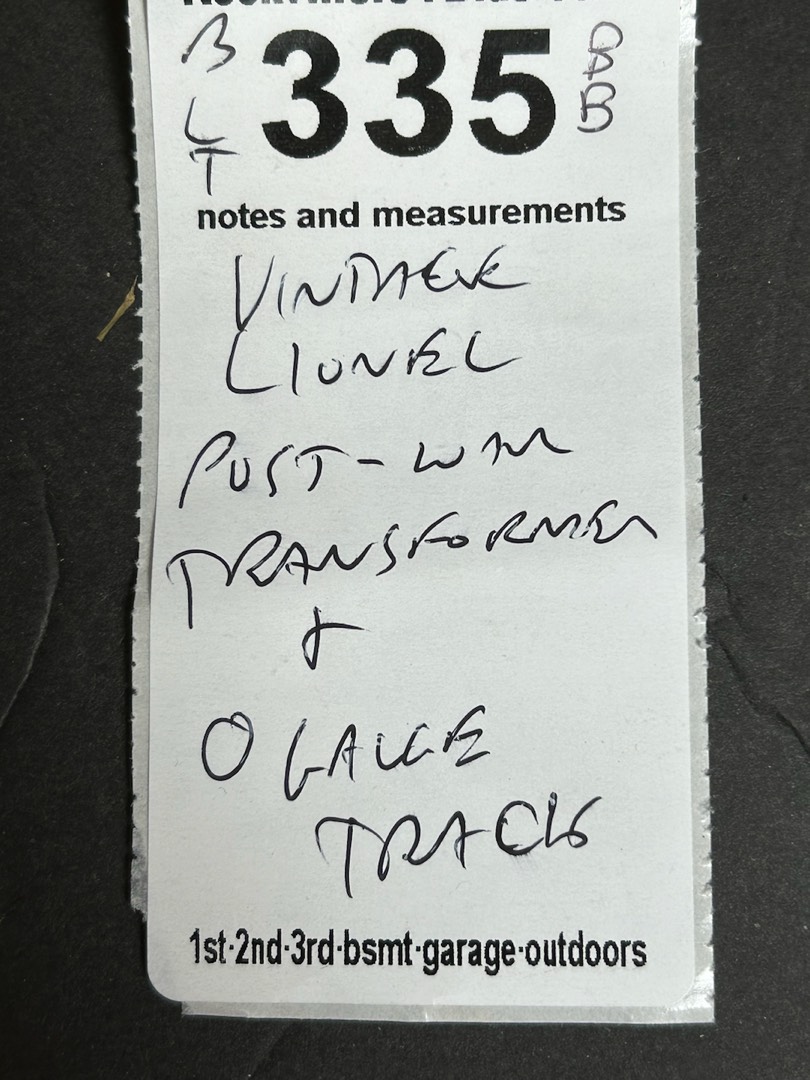 B 335 B
L B
T
notes and measurements
VINTAGE
LIONEL
POST-WAR
TRANSFORMER
+
O GAUGE
TRACK
1st·2nd·3rd·bsmt·garage·outdoors